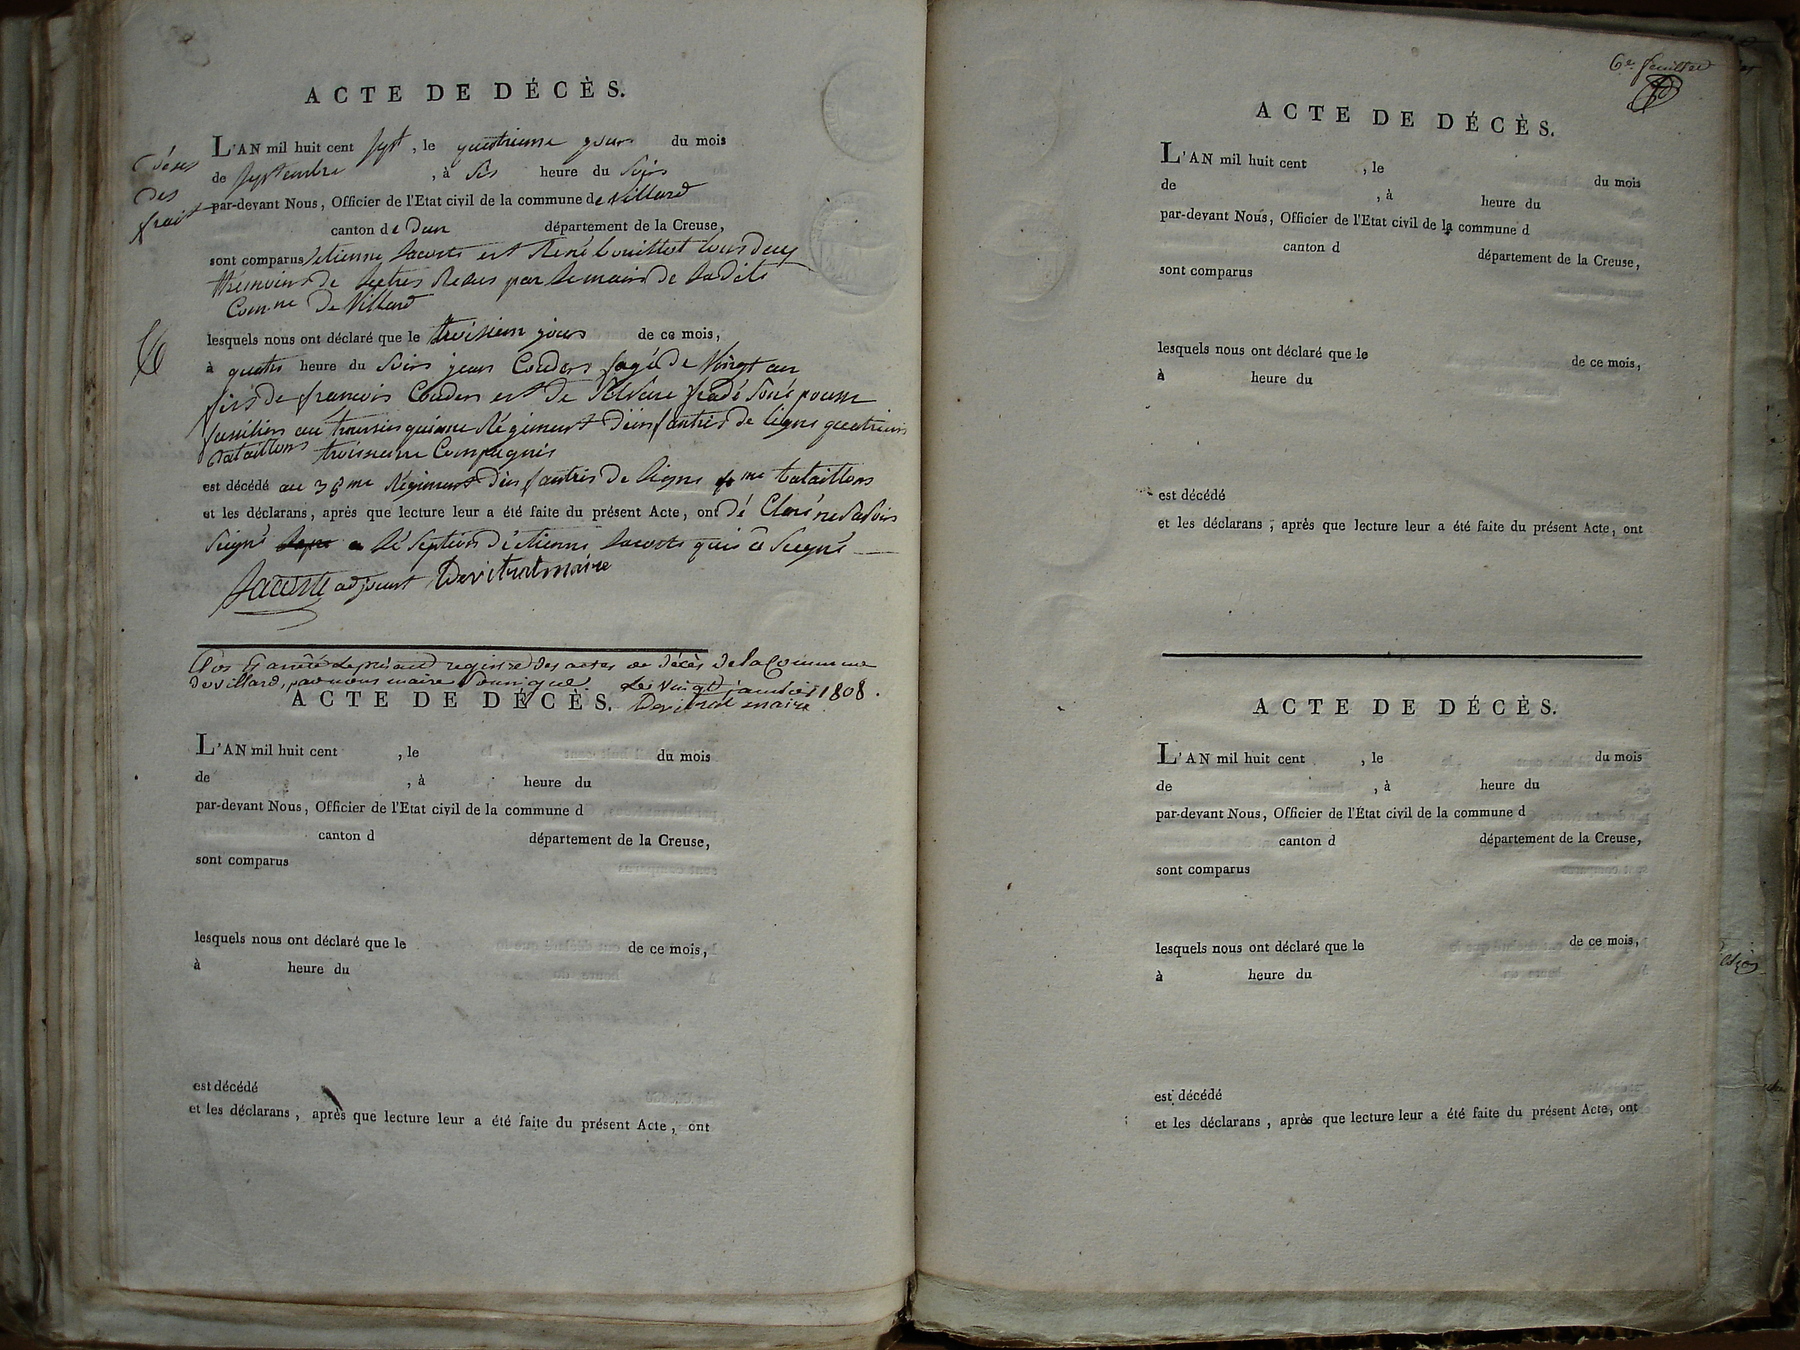 ACTE DE DÉCÈS.
L'AN mil huit cent sept, le quatrieme jour du mois
de septembre, à six heure du soir
par-devant Nous, Officier de l'Etat civil de la commune de villard
canton de Dun département de la Creuse,
sont comparus etienne Lacoste est René bouillot tous deux
de la dite
Com.ne De Villard
lesquels nous ont déclaré que le troisiem jour de ce mois,
à quatre heure du soir jean Couders agé de Vingt an
fils de françois Couders est de
fusillier au Régiment d'einfantrie de ligne quatriem
bataillons troisieme Compagnie
est décédé au 36me Régiment d'einfantrie De ligne 4me bataillons
et les déclarans, après que lecture leur a été faite du présent Acte, ont dé Claré ne savoir
Signé a l'é Ception d'etienne Lacoste qui a Signé
Lacoste adjoint Devitrat maire
décès
des
6
Clos Et arrêté le présent registre des actes de décès de la Commune
de villard, par nous maire Le vingt janvier 1808.
Devitrat maire
ACTE DE DÉCÈS.
L'AN mil huit cent , le du mois
de , à heure du
par-devant Nous, Officier de l'Etat civil de la commune d
canton d département de la Creuse,
sont comparus
lesquels nous ont déclaré que le de ce mois,
à heure du
est décédé
et les déclarans, après que lecture leur a été faite du présent Acte, ont
6e. feuillet
ACTE DE DÉCÈS.
L'AN mil huit cent , le du mois
de , à heure du
par-devant Nous, Officier de l'Etat civil de la commune d
canton d département de la Creuse,
sont comparus
lesquels nous ont déclaré que le de ce mois,
à heure du
est décédé
et les déclarans, après que lecture leur a été faite du présent Acte, ont
ACTE DE DÉCÈS.
L'AN mil huit cent , le du mois
de , à heure du
par-devant Nous, Officier de l'État civil de la commune d
canton d département de la Creuse,
sont comparus
lesquels nous ont déclaré que le de ce mois,
à heure du
est décédé
et les déclarans, après que lecture leur a été faite du présent Acte, ont